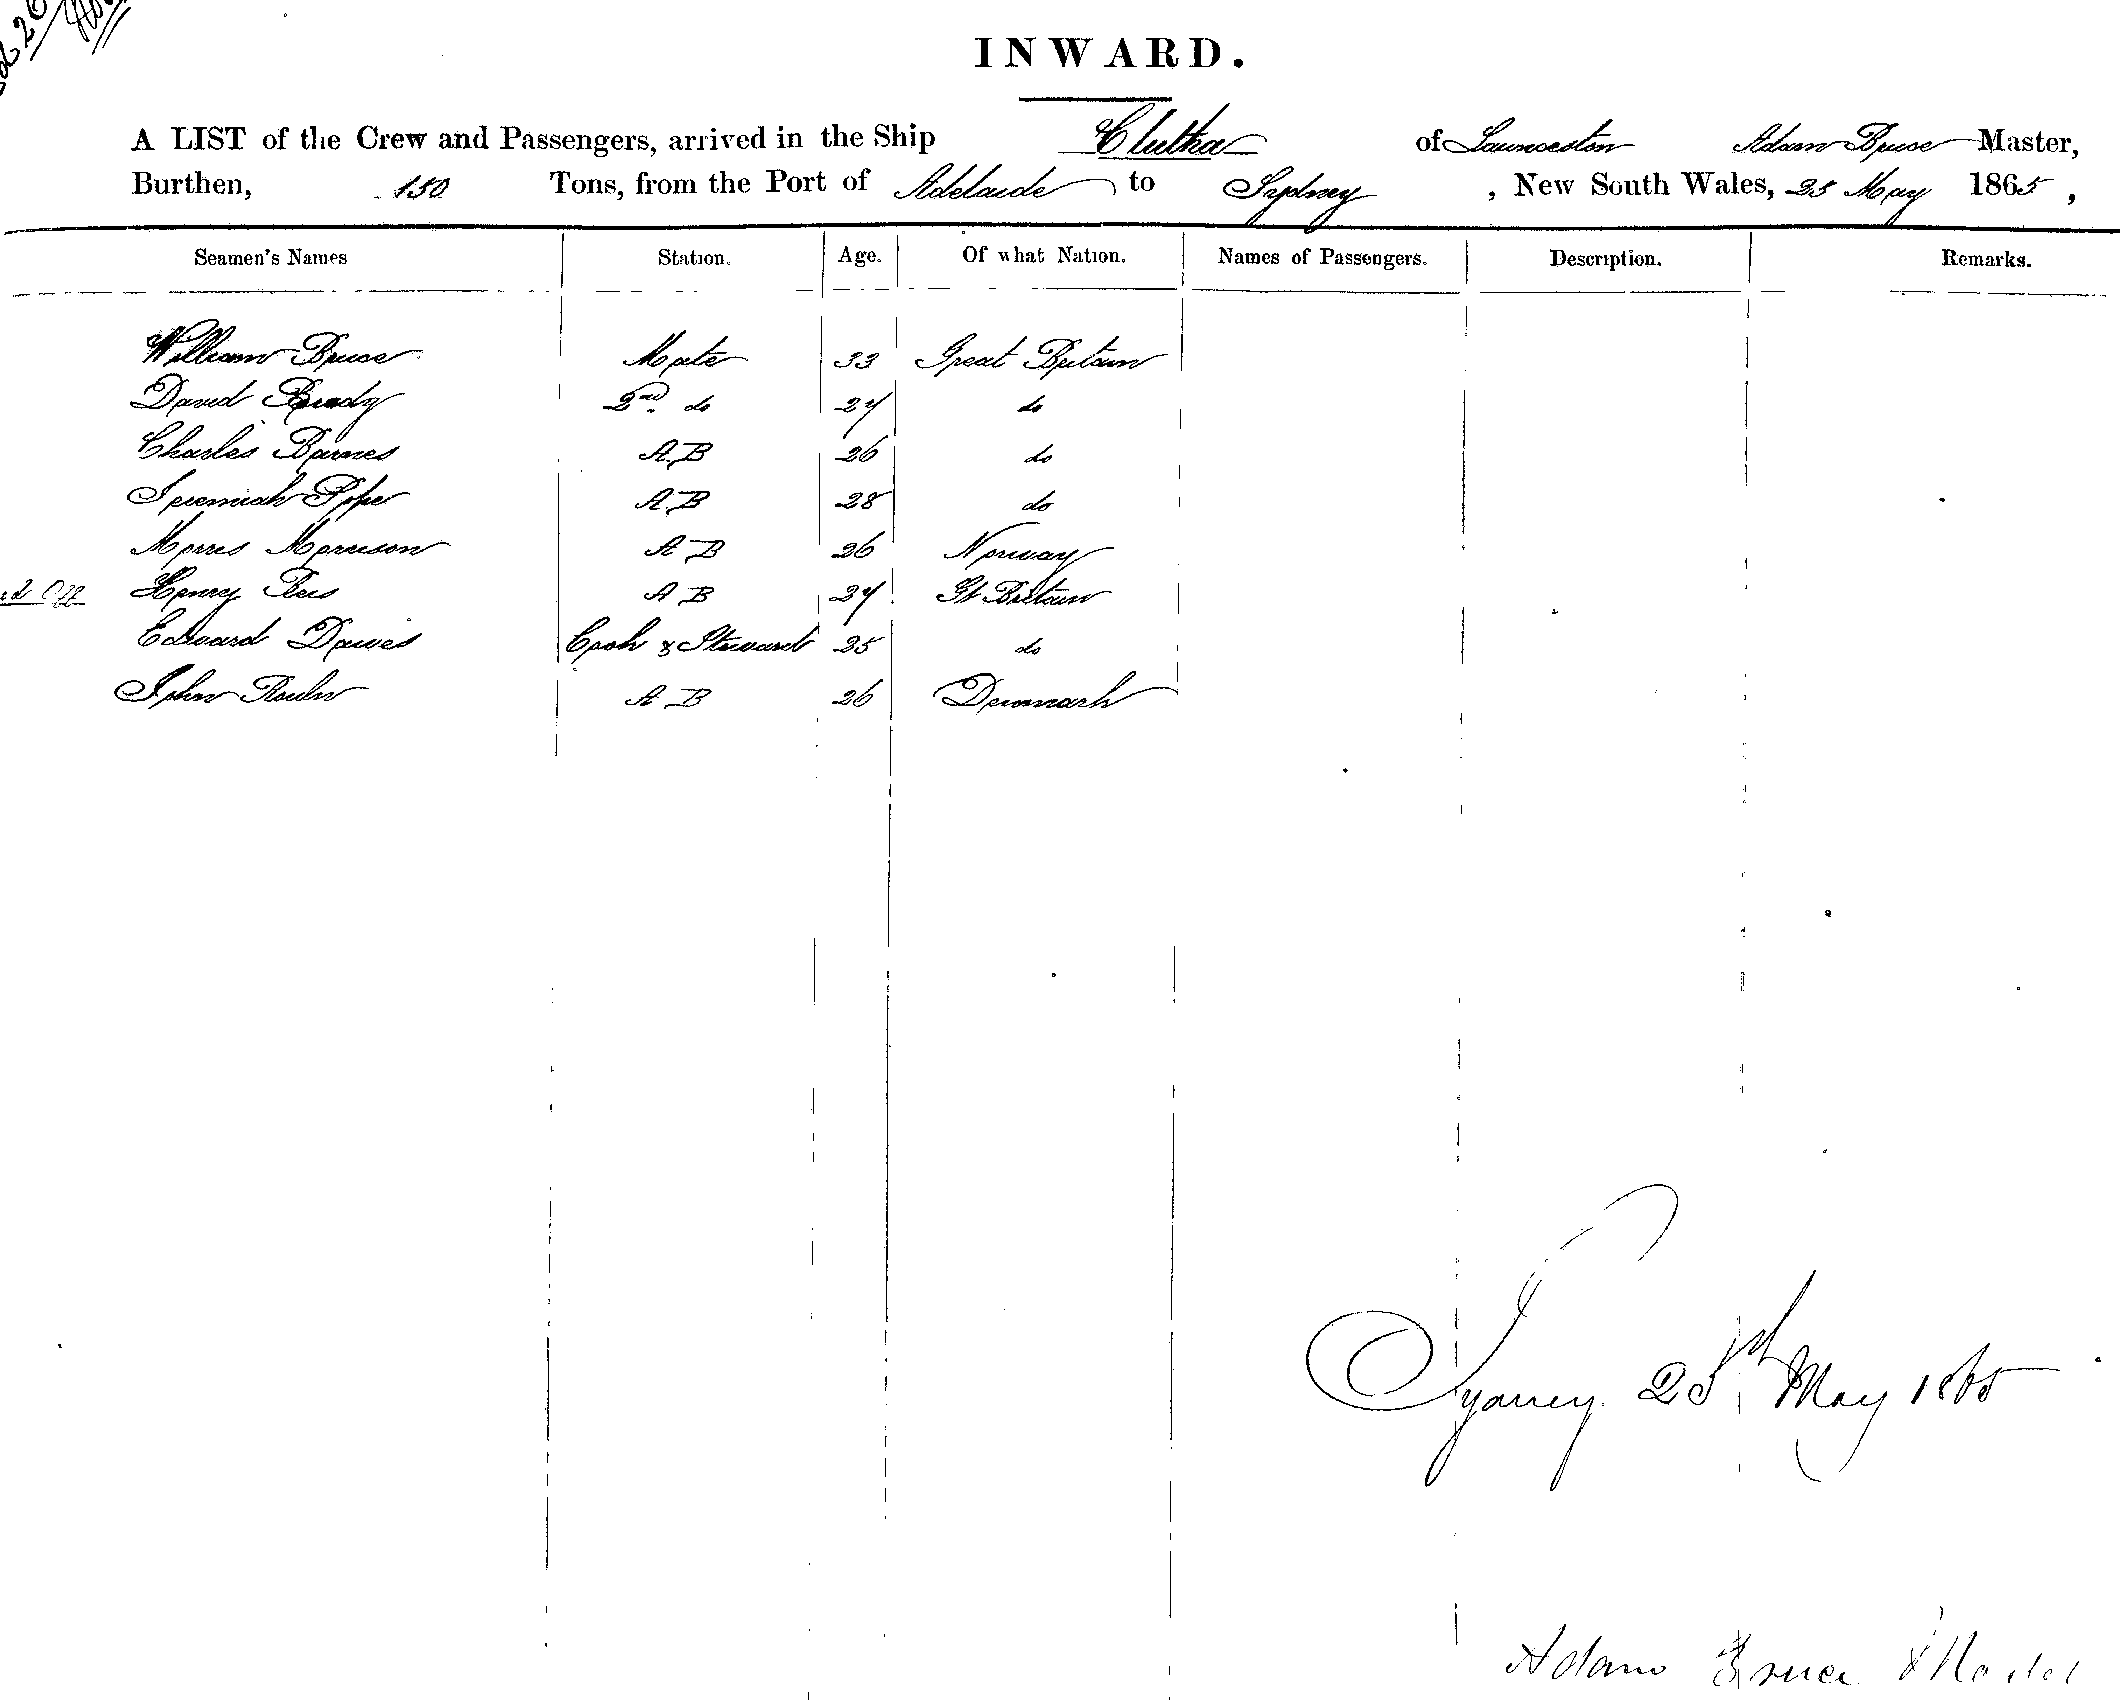 INWARD.
A LIST of the Crew and Passengers, arrived in the Ship Clutha of Launceston Adam Bruce Master,
Burthen, 150 Tons, from the Port of Adelaide to Sydney, New South Wales, 25 May 1865,
Seamen's Names Station. Age. Of what Nation. Names of Passengers. Description. Remarks.
William Bruce Mate 33 Great Britain
David Brady 2nd do 27 do
Charles Barnes A.B 26 do
Jeremiah Pope A.B 28 do
Morres Morrison A B 26 Norway
Off Henry A B 27 Gt Britain
Edward Davies Cook & Steward 25 do
John A B 26 Denmark
Sydney 25th May 1865
Adam Bruce Master